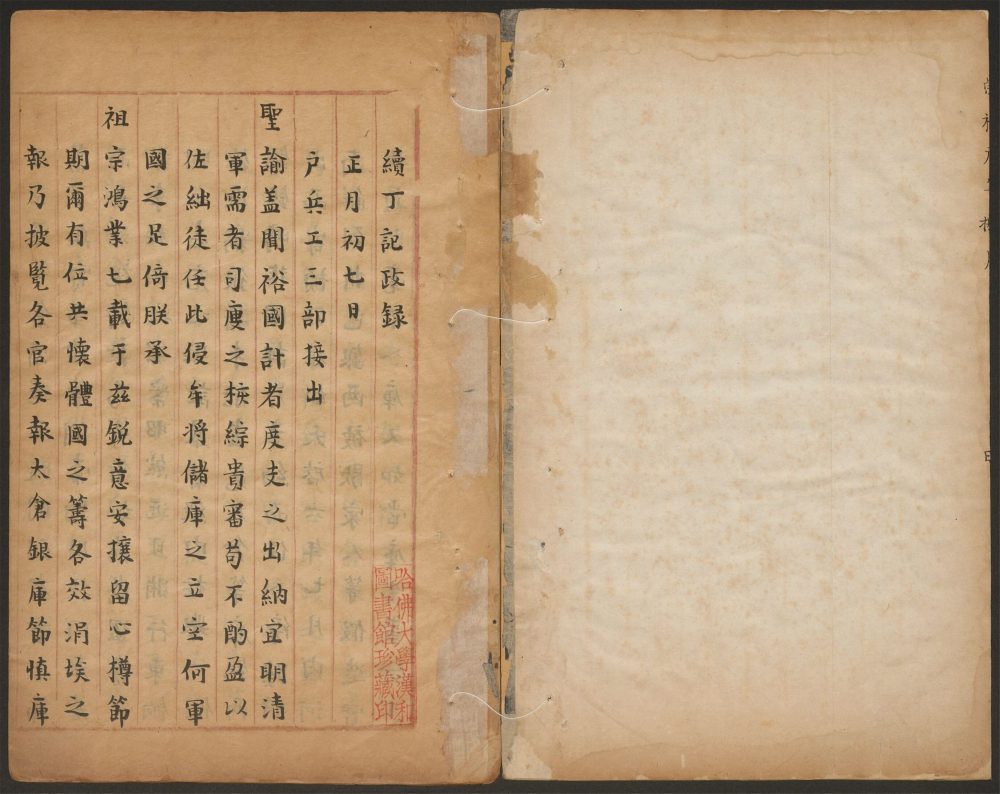 續丁記政録
正月初七日
户兵工三部接出
聖諭盖聞裕國計者度支之出納宜明清
軍需者司庾之挨綜貴審苟不酌盈以
佐絀徒任比侵牟將儲庫之立空何軍
國之足倚朕承
祖宗鴻業七載于兹鋭意安攘留心樽節
期爾有位共懷體國之籌各效涓埃之
報乃披覧各官奏報太倉銀庫節慎庫
哈佛大學漢和
圖書館珍藏印